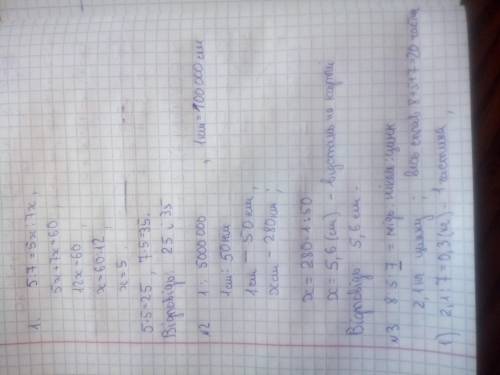 1. 5:7 = 5x:7x,
5x+7x=60,
12x=60,
x=60:12,
x=5.
5·5=25, 7·5=35.
Відповідь 25 і 35
№2 1: 5000000, 1км=100000см
1см: 50км
1см – 50км,
xсм – 280км;
x = 280·1:50
x = 5,6 (см) – відстань на карті
Відповідь 5,6 см.
№3 8 5 7 = мідь: нікель: цинк
2,1кг цинку; весь сплав 8+5+7=20 частин
1) 2,1:7=0,3(кг) – 1 частина,